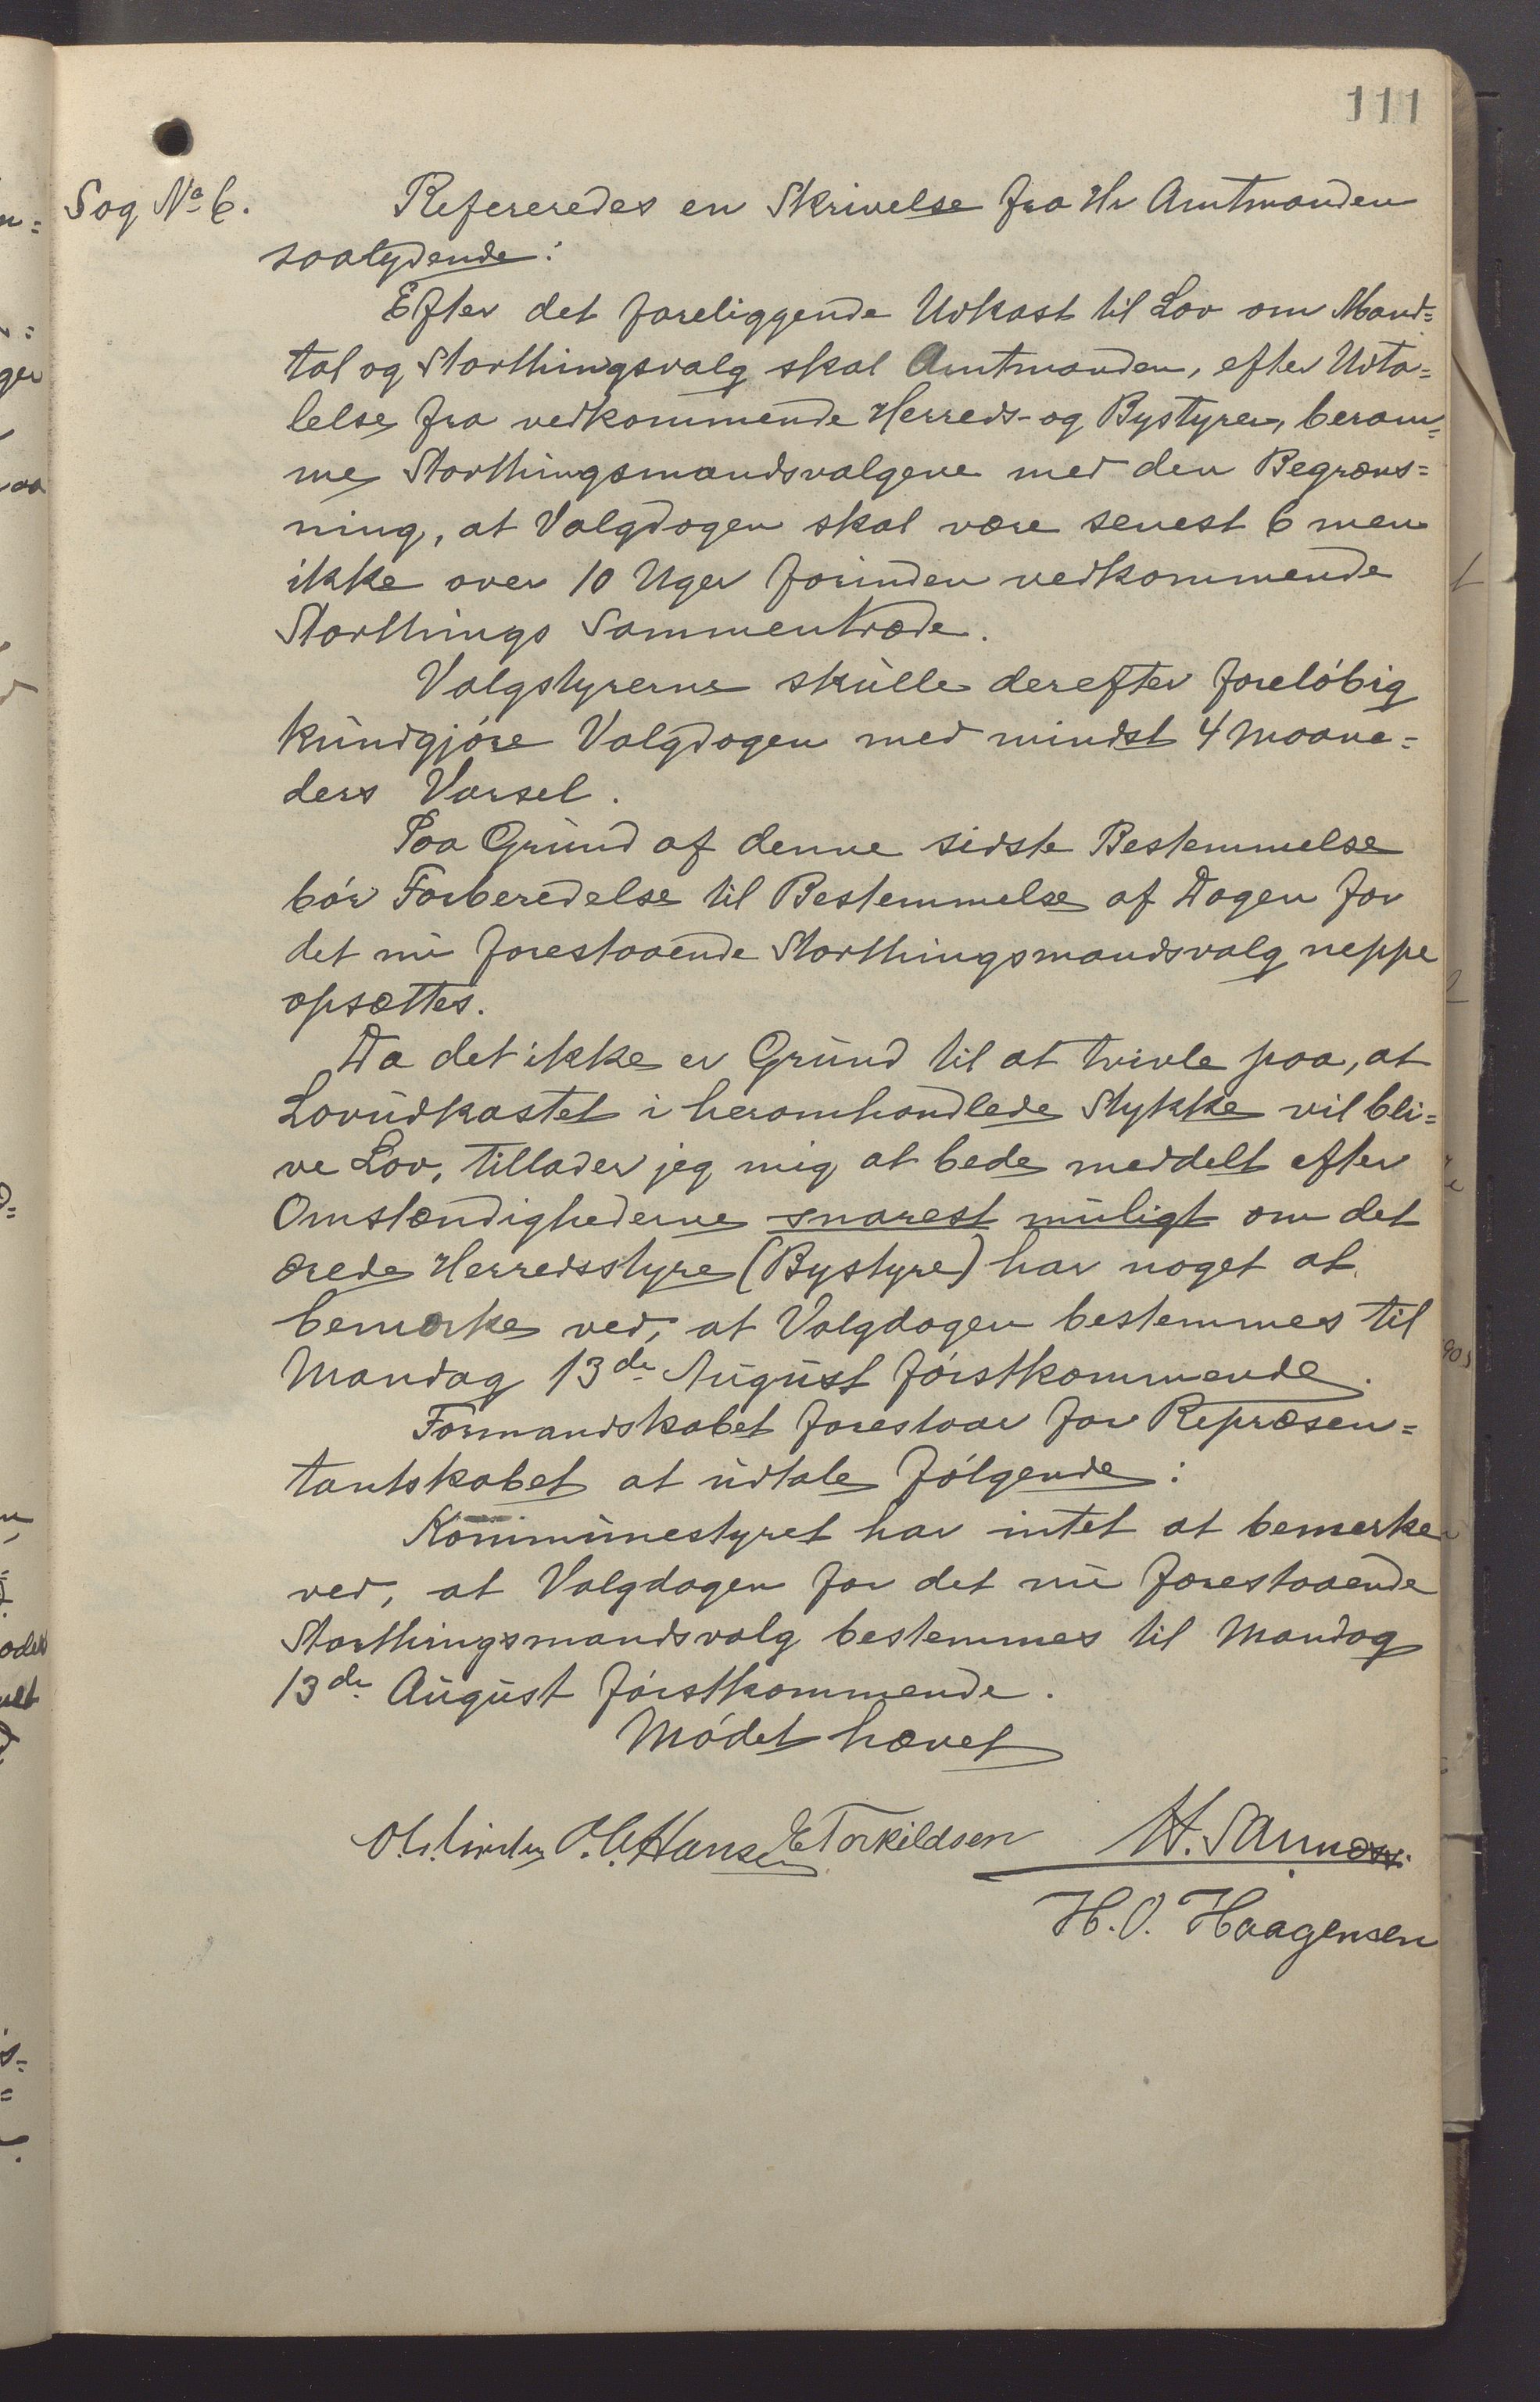 111
Sag No 6.
Refereredes en Skrivelse fra Hr Amtmanden
saalydende:
Efter det foreliggende Udkast til Lov om Mand=
tal og Storthingsvalg skal Amtmanden, efter Udta=
lelse fra vedkommende Herreds- og Bystyrer, beram=
me Storthingsmandsvalgene med den Begræns=
ning, at Valgdagen skal være senest 6 men
ikke over 10 Uger forinden vedkommende
Storthings Sammentræde.
Valgstyrerne skulle derefter foreløbig
kundgjøre Valgdagen med mindst 4 Maane=
ders Varsel.
Paa Grund af denne sidste Bestemmelse
bør Forberedelse til Bestemmelse af Dagen for
det nu forestaaende Storthingsmandsvalg neppe
opsættes.
Da det ikke er Grund til at tvivle paa, at
Lovudkastet i heromhandlede Stykke vil bli=
ve Lov, tillader jeg mig at bede meddelt efter
Omstændighederne snarest muligt om det
ærede Herredsstyre (Bystyre) har noget at
bemærke ved, at Valgdagen bestemmes til
Mandag 13de August førstkommende.
Formandskabet forestaar for Repræsen=
tantskabet at udtale følgende:
Kommunestyret har intet at bemerke
ved, at Valgdagen for det nu forestaaende
Storthingsmandsvalg bestemmes til Mandag
13de August førstkommende.
Mødet hævet
O. C. Hansen E Torkildsen
H. O. Haagensen